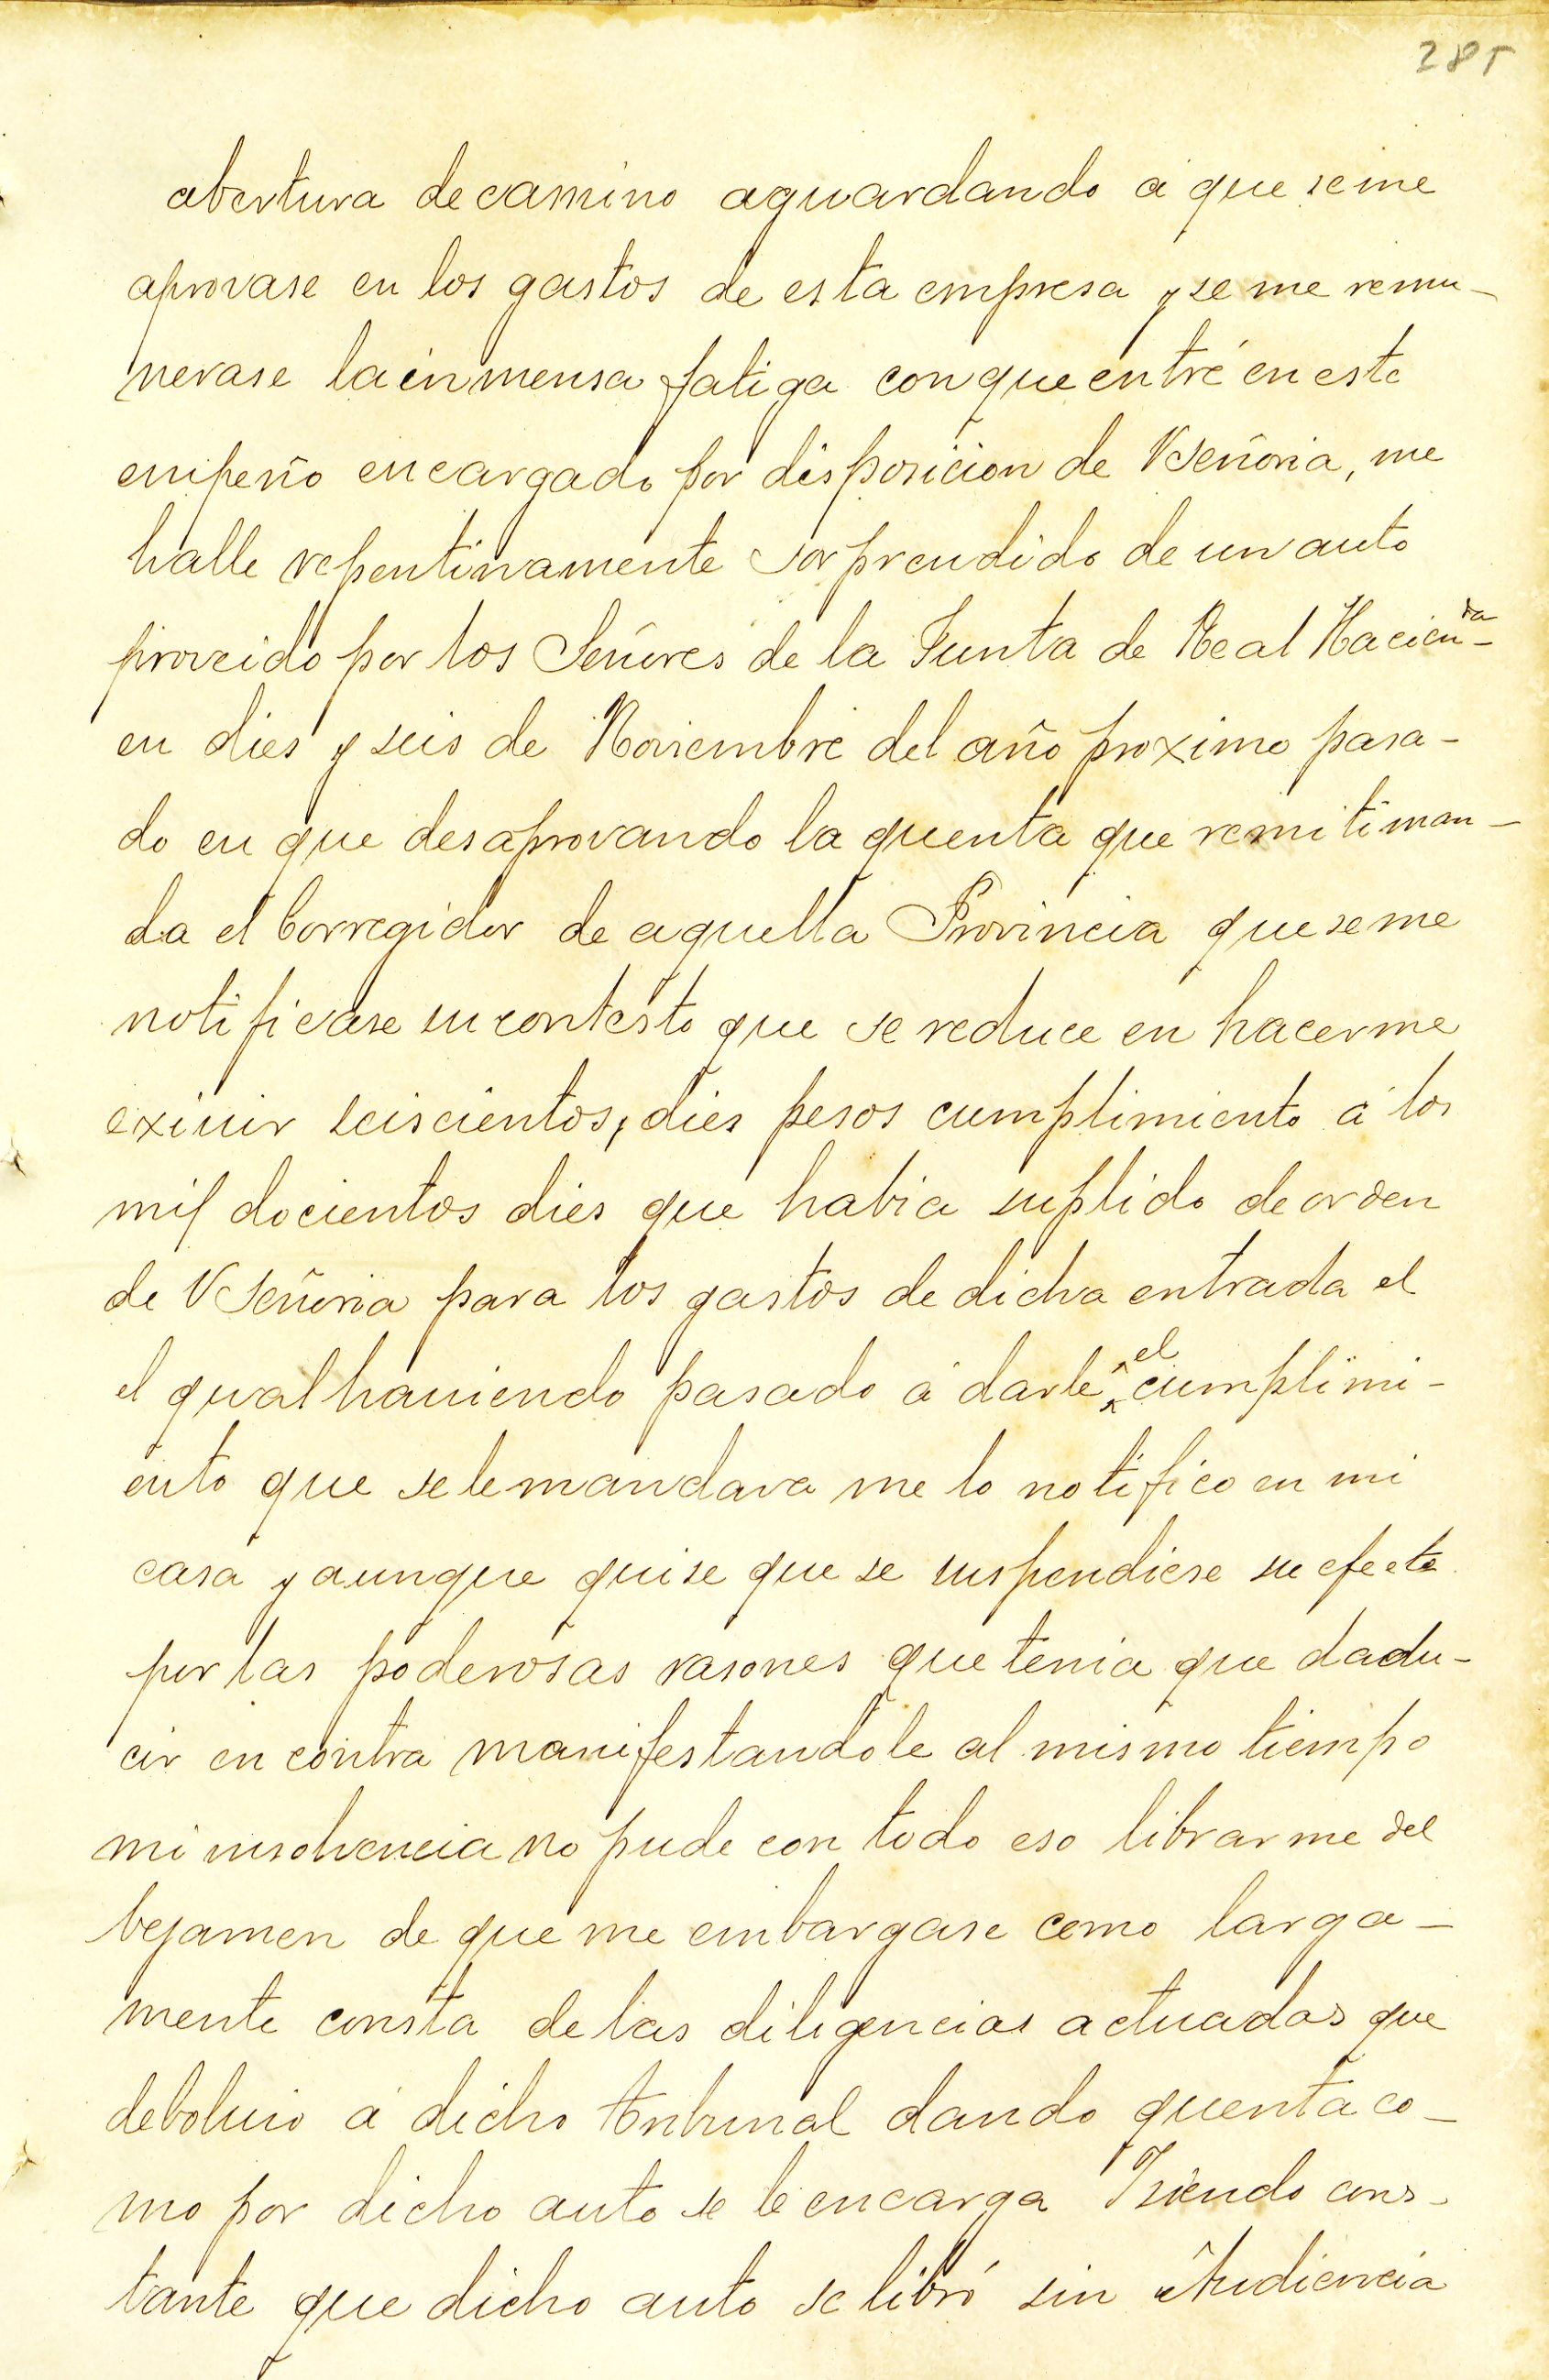 285
abertura de camino aguardando á que se me
aprovase en los gastos de esta empresa y se me remu-
nerase la inmensa fatiga con que entré en este
empeño encargado por disposicion de VSeñoria, me
halle repentinamente sorprendido de un auto
proveido por los Señores de la Junta de Real Hacien-da
en dies y seis de Noviembre del año proximo pasa-
do en que desaprovando la quenta que remiti man-
da el Corregidor de aquella Provincia que se me
notificase su contesto que se reduce en hacerme
exivir seiscientos, dies pesos cumplimiento á los
mil docientos dies que habia suplido de orden
de VSeñoria para los gastos de dicha entrada el
el qual haviendo pasado á darle el cumplimi-
ento que se le mandava me lo notifico en mi
casa y aunque quise que se suspendiese su efecto
por las poderosas rasones que tenia que dadu-
cir en contra manifestandole al mismo tiempo
mi insolvencia no pude con todo eso librarme del
bejamen de que me embargase como larga-
mente consta de las diligencias actuadas que
debolvio á dicho tribunal dando quenta co-
mo por dicho auto se le encarga Y siendo cons-
tante que dicho auto se libró sin Audiencia